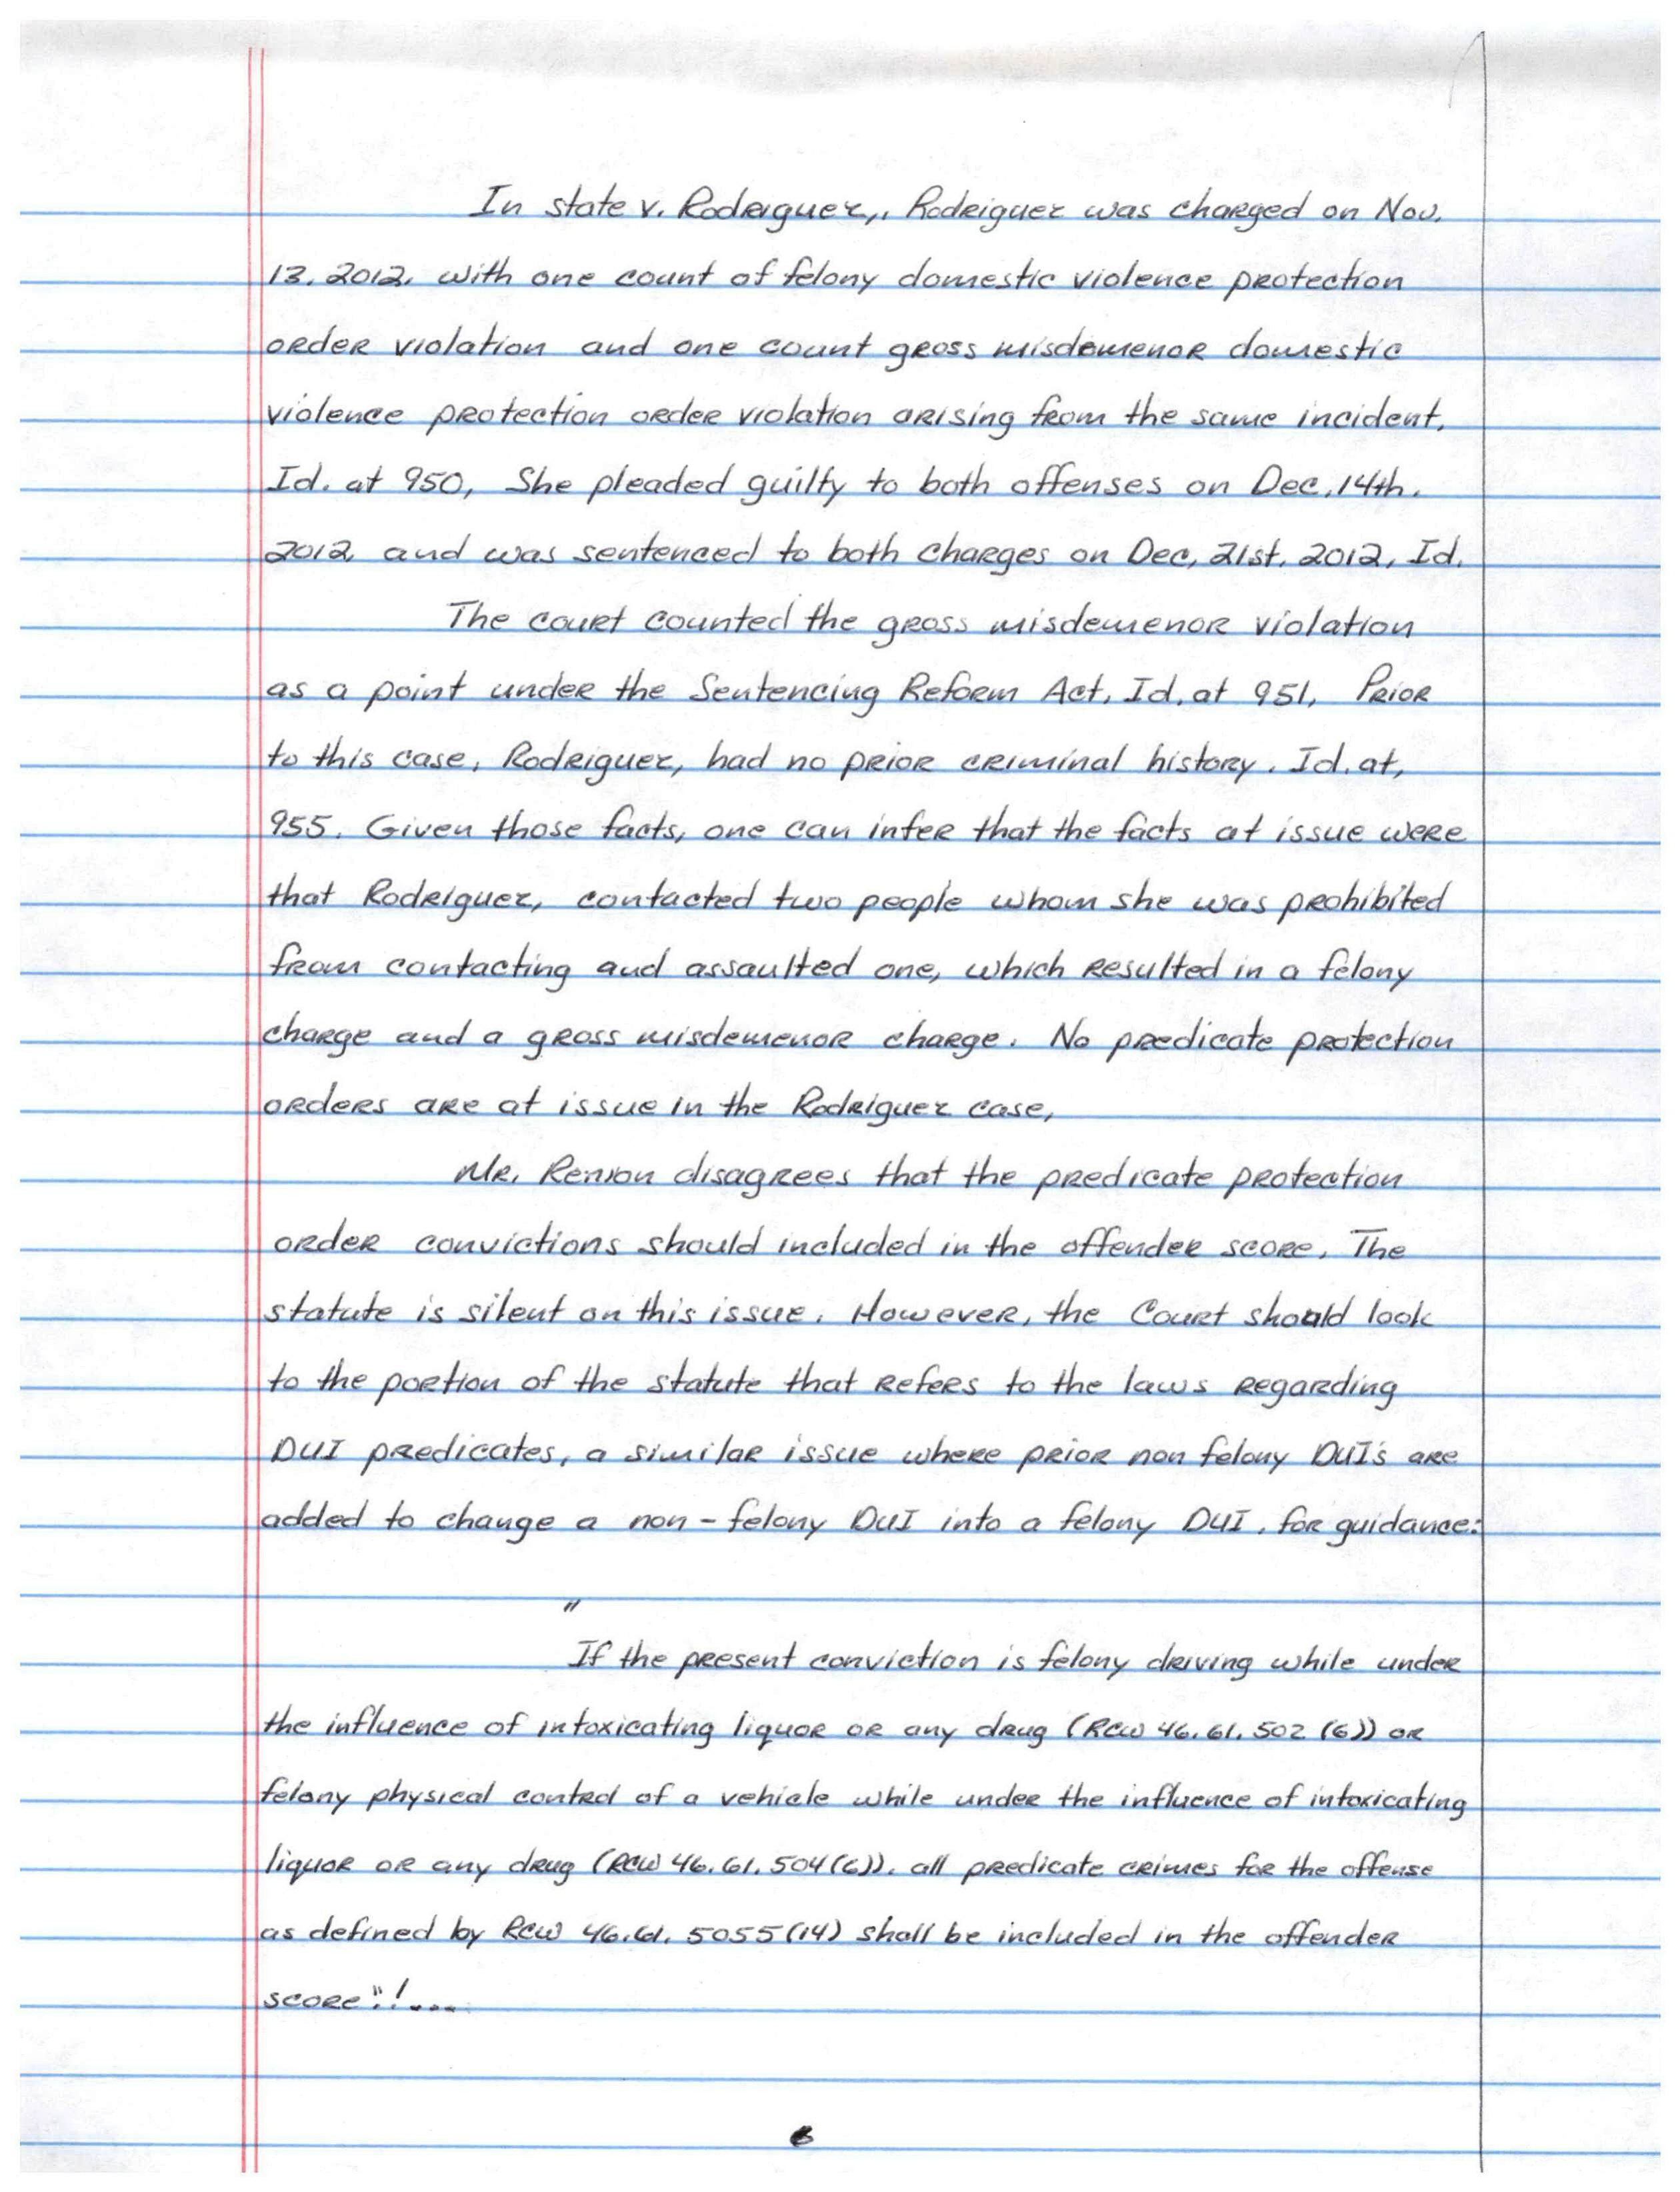 In state v. Rodriguez,, Rodriguez was charged on Nov.
13. 2012. with one count of felony domestic violence protection
order violation and one count gross misdemenor domestic
violence protection order violation arising from the same incident.
Id. at 950, She pleaded guilty to both offenses on Dec, 14th.
2012 and was sentenced to both charges on Dec, 21st, 2012, Id.
The court counted the gross misdemenor violation
as a point under the Sentencing Reform Act, Id. at 951, Prior
to this case, Rodriguez, had no prior criminal history. Id. at,
955. Given those facts, one can infer that the facts at issue were
that Rodriguez, contacted two people whom she was prohibited
from contacting and assaulted one, which resulted in a felony
charge and a gross misdemenor charge. No predicate protection
orders are at issue in the Rodriguez case,
Mr. Renion disagrees that the predicate protection
order convictions should included in the offender score. The
statute is silent on this issue. However, the Court should look
to the portion of the statute that refers to the laws regarding
DUI predicates, a similar issue where prior non felony DUI's are
added to change a non-felony DUI into a felony DUI, for guidance:
"
If the present conviction is felony driving while under
the influence of intoxicating liquor or any drug (RCW 46.61.502 (6)) or
felony physical control of a vehicle while under the influence of intoxicating
liquor or any drug (RCW 46.61.504(6)). all predicate crimes for the offense
as defined by RCW 46.61.5055(14) shall be included in the offender
score"!....
6